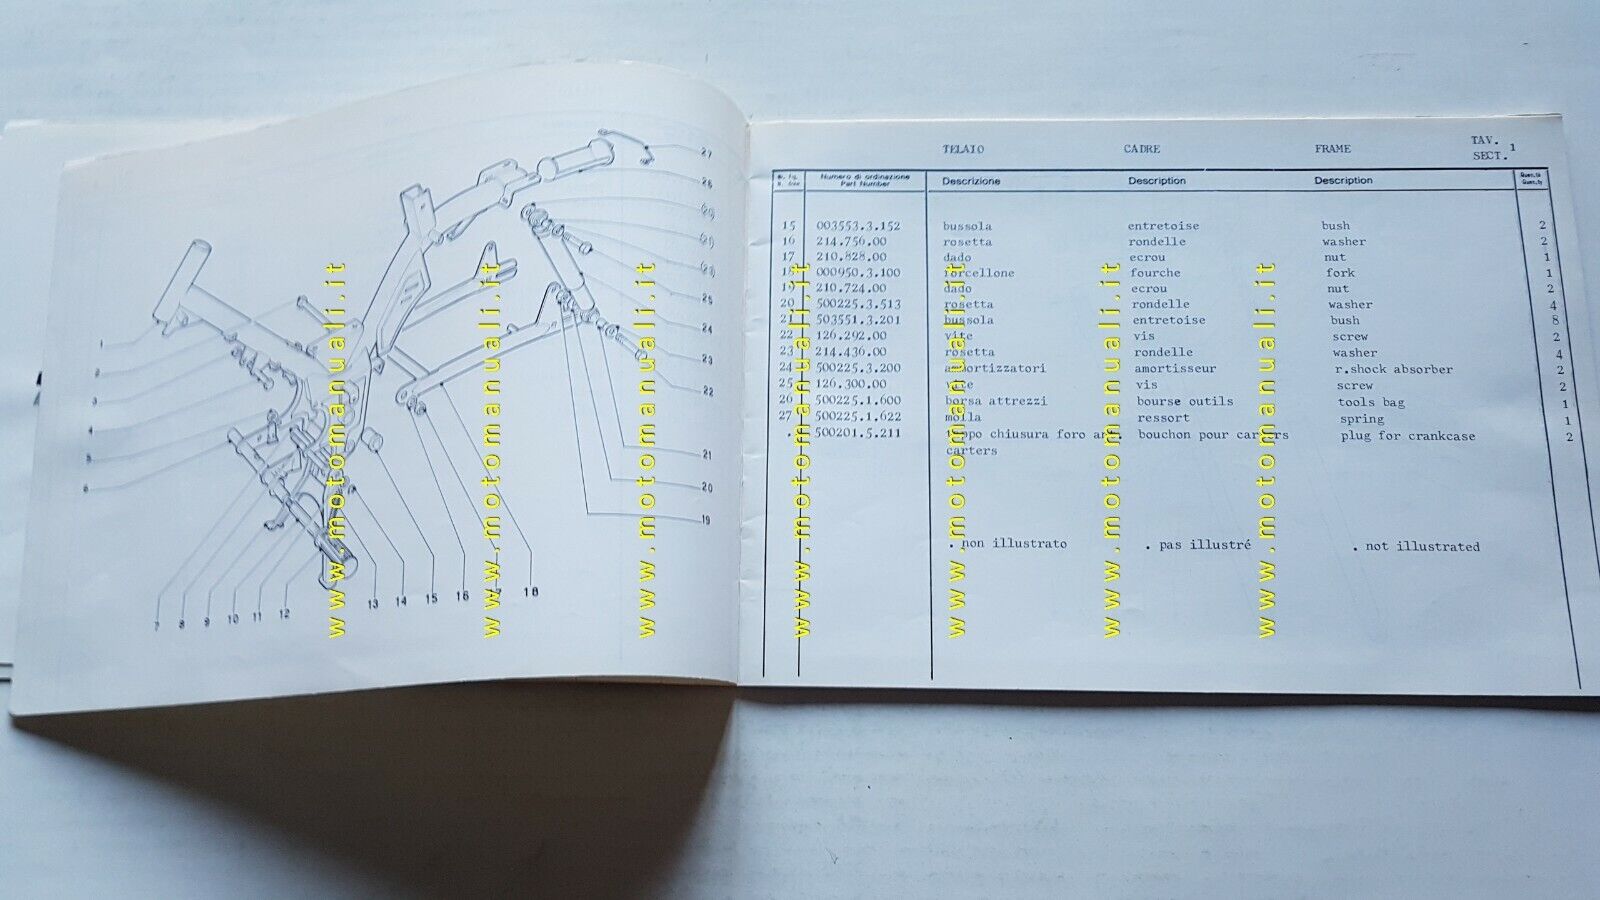 27
26
(20)
(21)
(23)
25
24
23
22
21
20
19
1
2
3
4
5
6
7 8 9 10 11 12 13 14 15 16 18
www.motomanuali.it
www.motomanuali.it
www.motomanuali.it
TELAIO CADRE FRAME TAV. 1
SECT.
Numero di ordinazione
Part Number
Descrizione Description Description
15 003553.3.152 bussola entretoise bush 2
16 214.756.00 rosetta rondelle washer 2
17 210.828.00 dado ecrou nut 1
18 000950.3.100 forcellone fourche fork 1
19 210.724.00 dado ecrou nut 2
20 500225.3.513 rosetta rondelle washer 4
21 503551.3.201 bussola entretoise bush 8
22 126.292.00 vite vis screw 2
23 214.436.00 rosetta rondelle washer 4
24 500225.3.200 amortizzatori amortisseur r.shock absorber 2
25 126.300.00 vite vis screw 2
26 500225.1.600 borsa attrezzi bourse outils tools bag 1
27 500225.1.622 molla ressort spring 1
. 500201.5.211 tappo chiusura foro ant. bouchon pour carters plug for crankcase 2
carters
. non illustrato . pas illustré . not illustrated
www.motomanuali.it
www.motomanuali.it
www.motomanuali.it
www.motomanuali.it